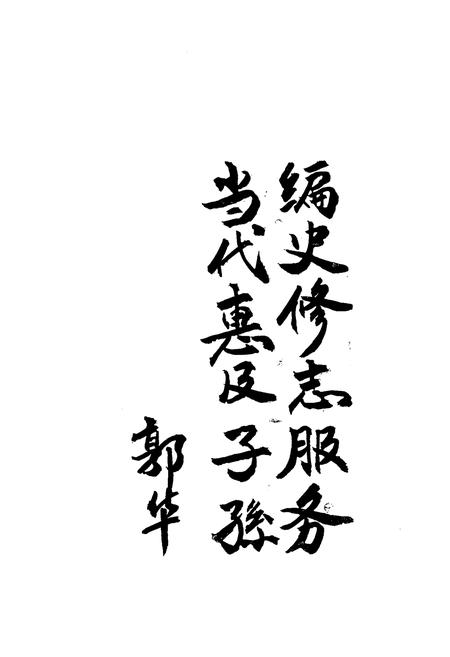 编史修志服务
当代惠及子孫
郭华